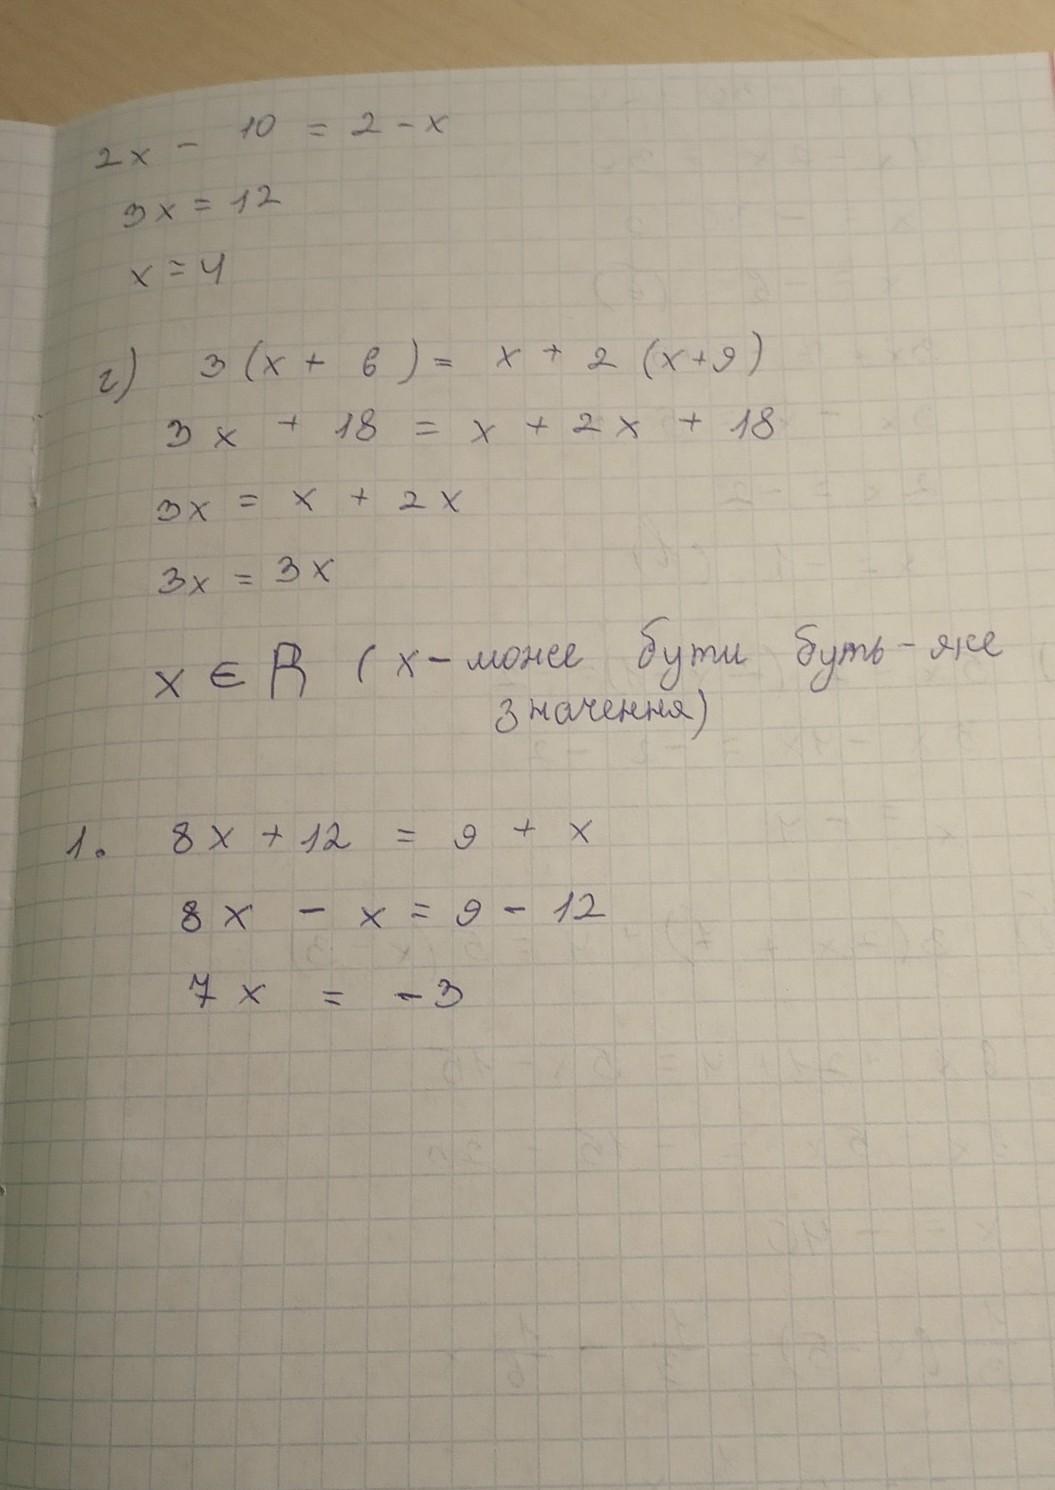 2x - 10 = 2 - x
3x = 12
x = 4
г) 3(x + 6) = x + 2(x+9)
3x + 18 = x + 2x + 18
3x = x + 2x
3x = 3x
x ∈ R (x - може бути буть-яке
значення)
1. 8x + 12 = 9 + x
8x - x = 9 - 12
7x = -3